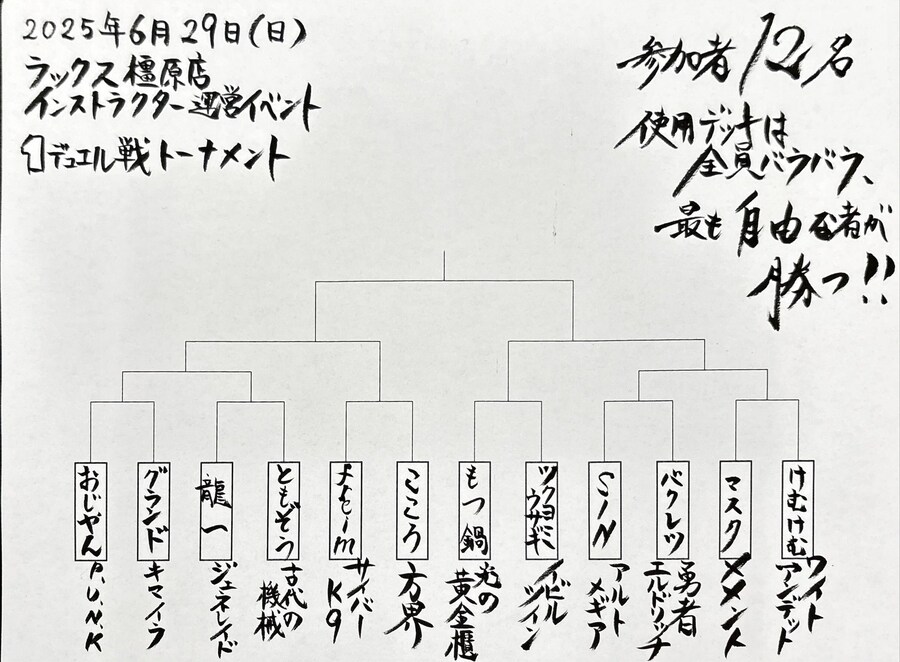 2025年6月29日(日)
ラックス橿原店
インストラクター運営イベント
デュエル戦トーナメント
参加者12名
使用デッキは
全員バラバラ、
最も自由な者が
勝つ!!
おじやん
P.U.N.K
グランド
キマイラ
龍一
ジェネレイド
ともぞう
古代の
機械
サイバー
K9
こころ
方界
もつ鍋
光の
黄金櫃
ツクヨミ
ウサギ
イビル
ツイン
SIN
アルト
メギア
バクレツ
勇者
エルドリッチ
マスク
メメント
けむけむ
ワイト
アンデット